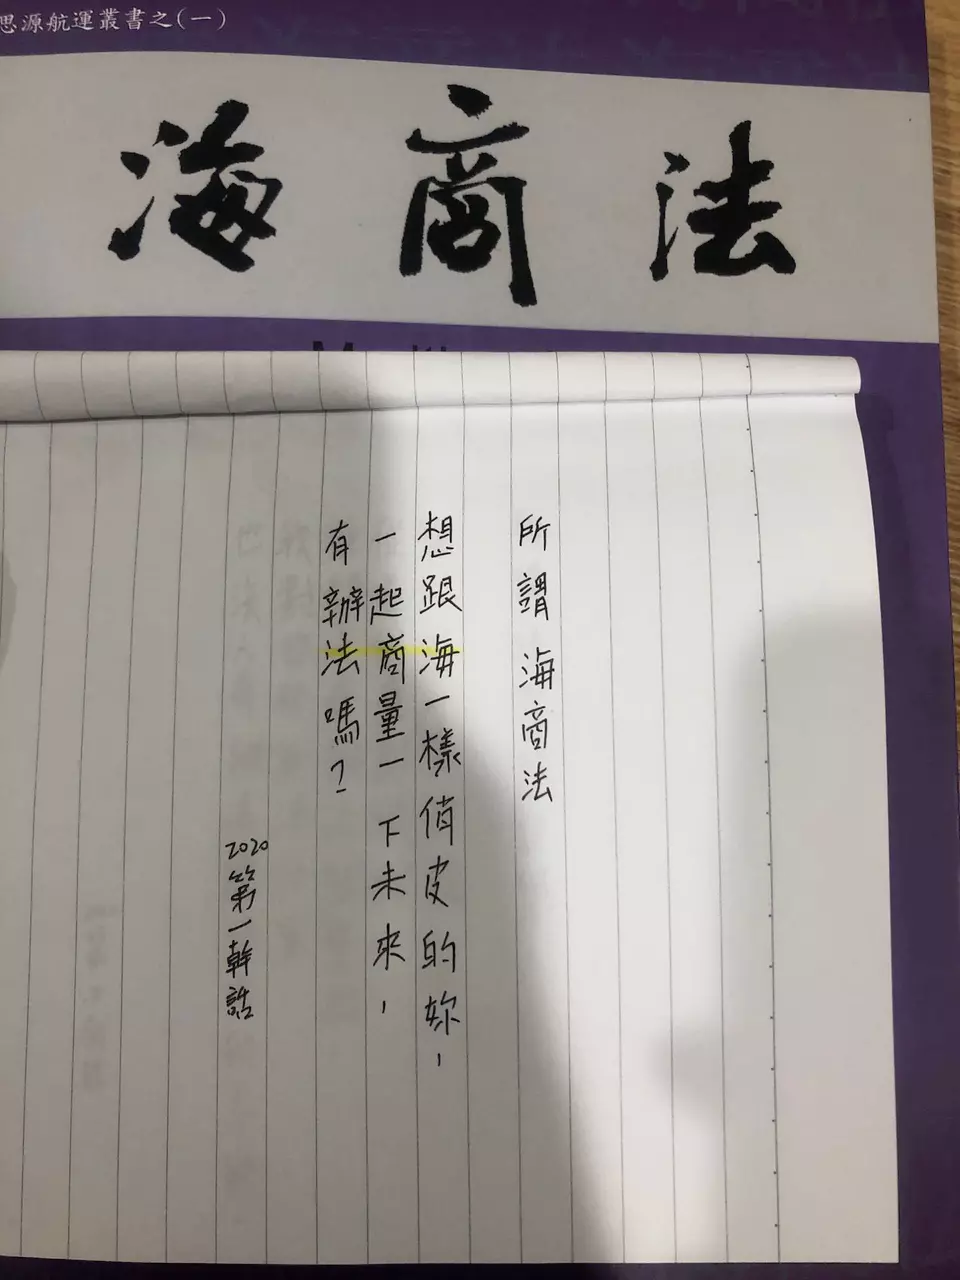 思源航運叢書之(一)
海商法
所謂海商法
想跟海一樣俏皮的妳，
一起商量一下未來，
有辦法嗎？
2020第一幹話